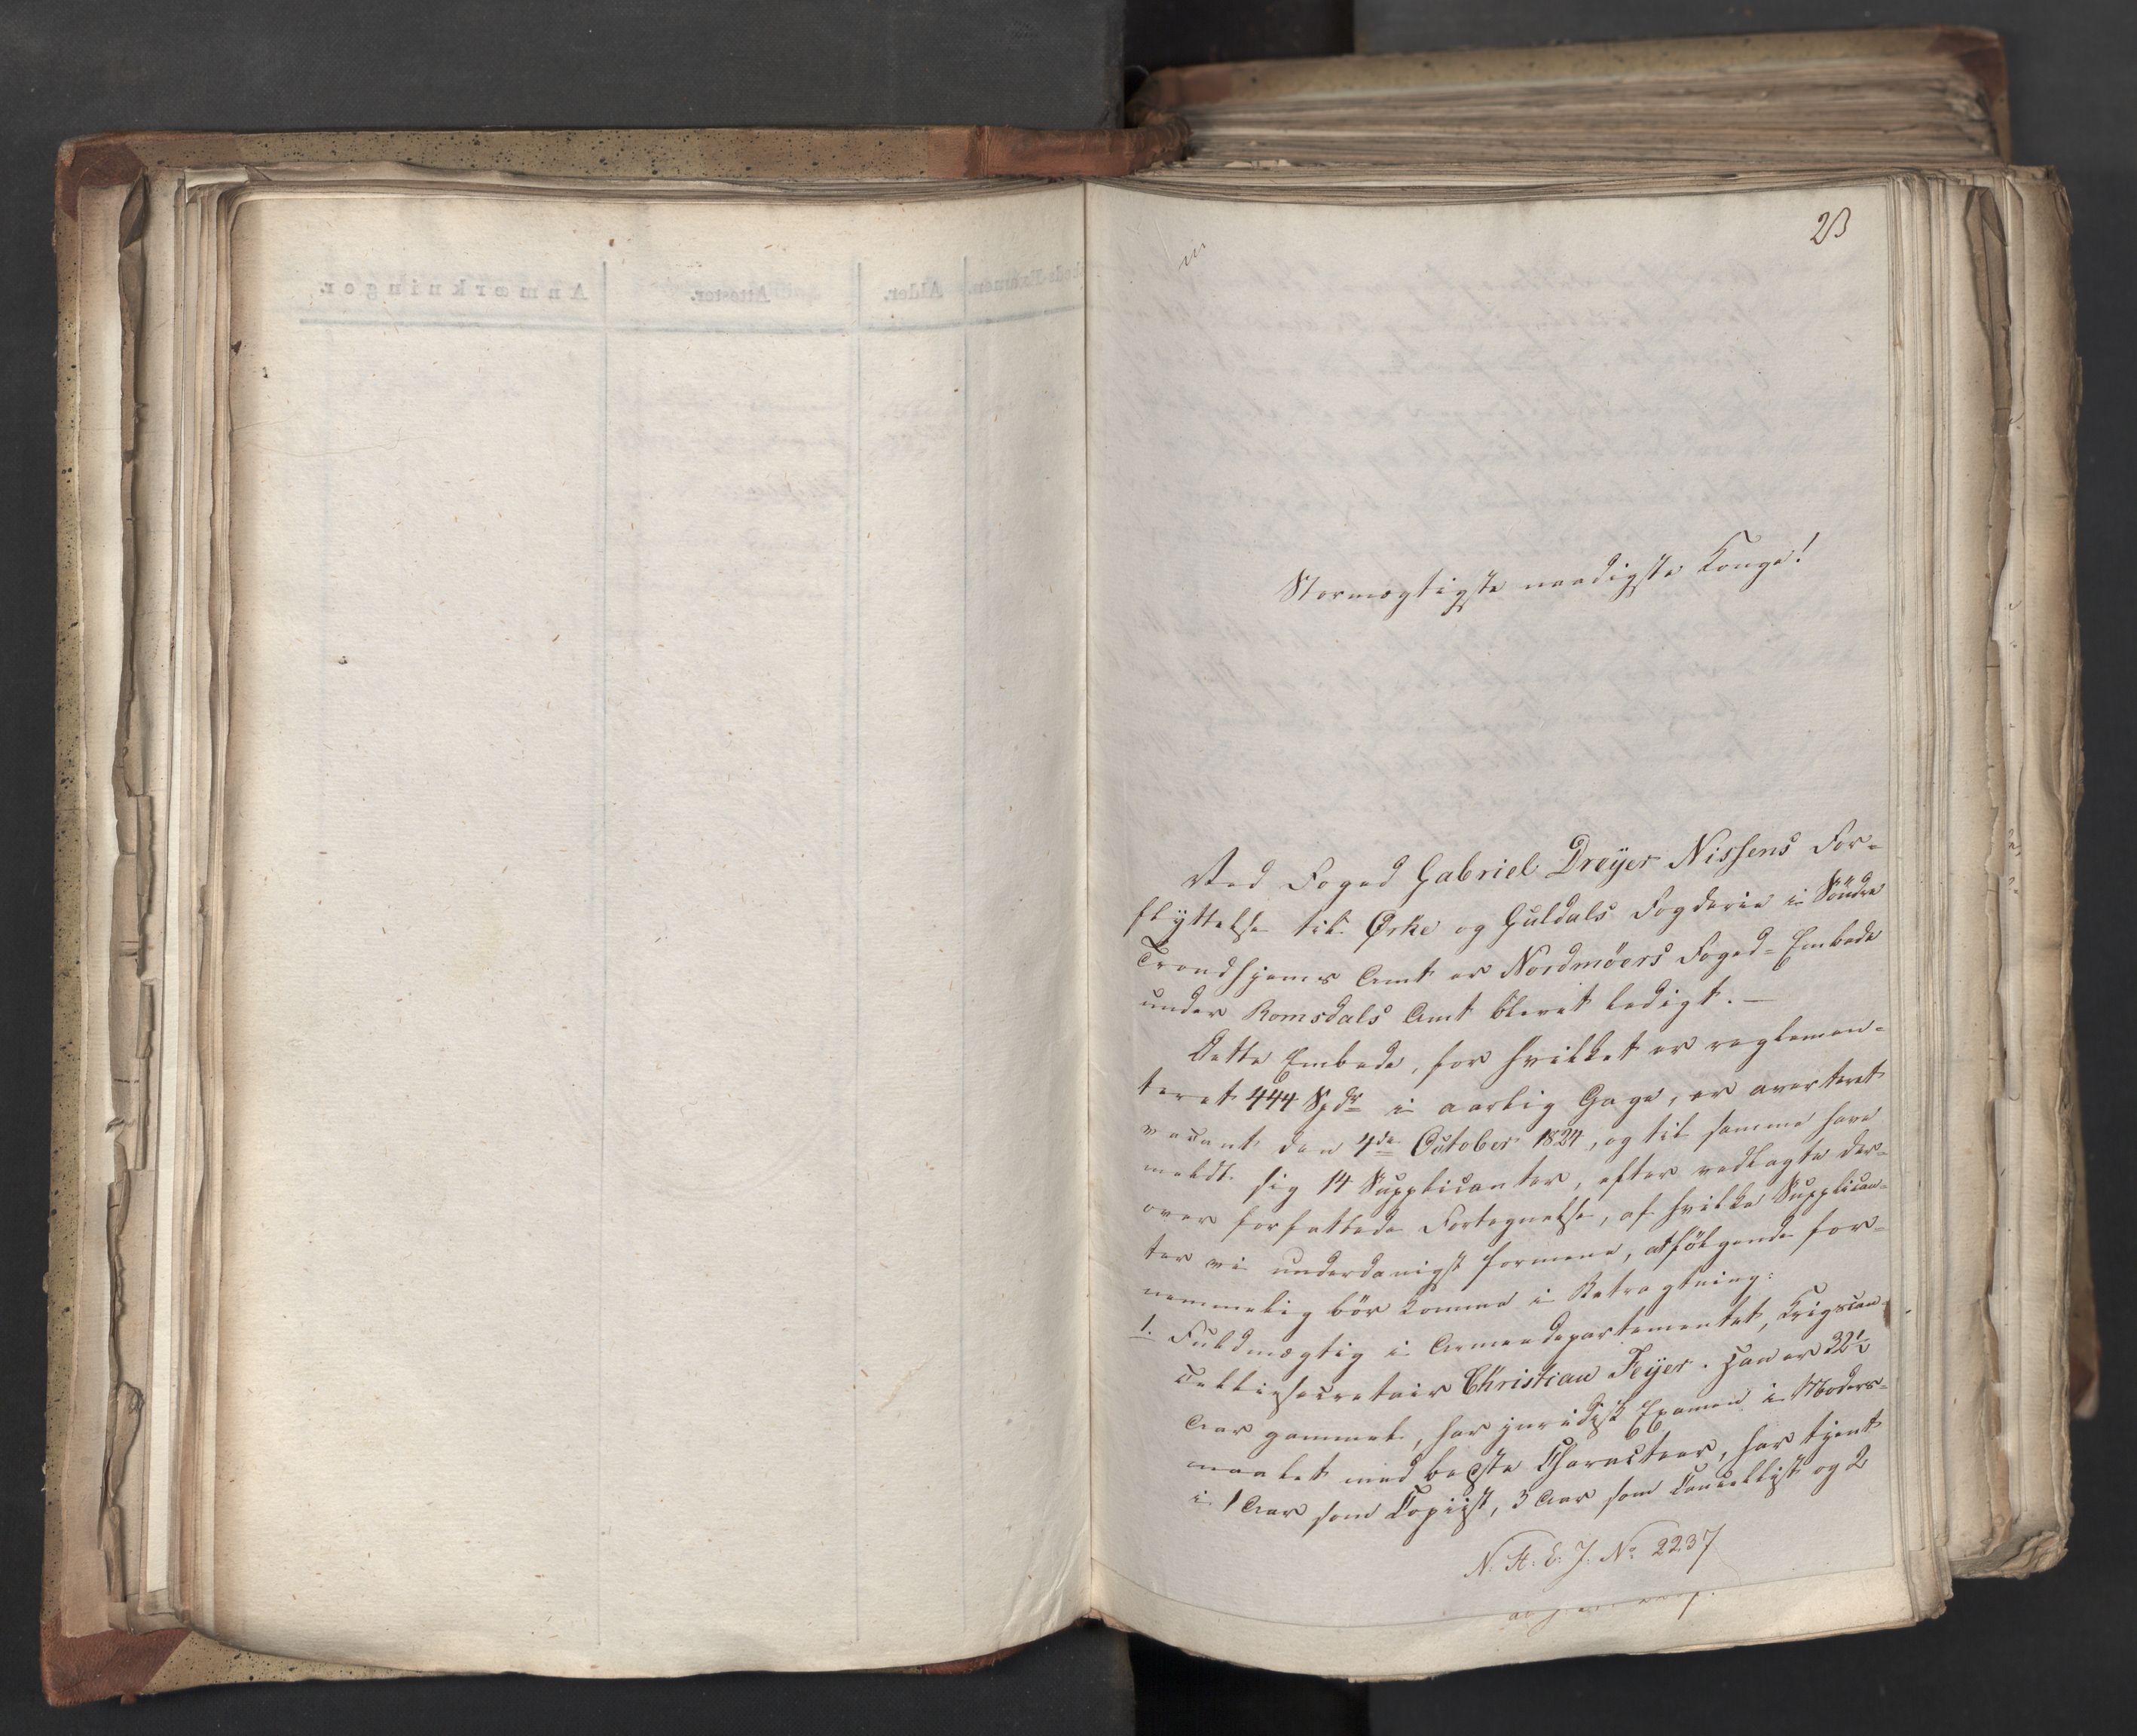 23
Stormægtigste naadigste Konge!
Ved Foged Gabriel Dreÿer Nissens For=
flyttelse til Örke og Guldals Fogderie i Söndre
Trondhjems Amt er Nordmöers Foged=Embede
under Romsdals Amt blevet ledigt. —
Dette Embede, for hvilket er reglemen=
teret 444 Spdr i aarlig Gage, er averteret
vacant den 4de October 1824, og til samme have
meldt sig 14 Supplicanter, efter vedlagte der=
over forfattede Fortegnelse, af hvilke Supplican=
ter vi underdanigst formene, at följende for=
nemmelig bör komme i Betragtning:
1. Fuldmægtig i Armeedepartementet, Krigscan=
celliesecretair Christian Feÿer. Han er 32½
Aar gammel, har juridisk Examen i Moders=
maalet med bedste Characteer, har tjent
i 1 Aar som Copiist, 3 Aar som Cancellist og 2
N. St: E. J: No 2237
Anmærkninger.
Attester.
Alder.